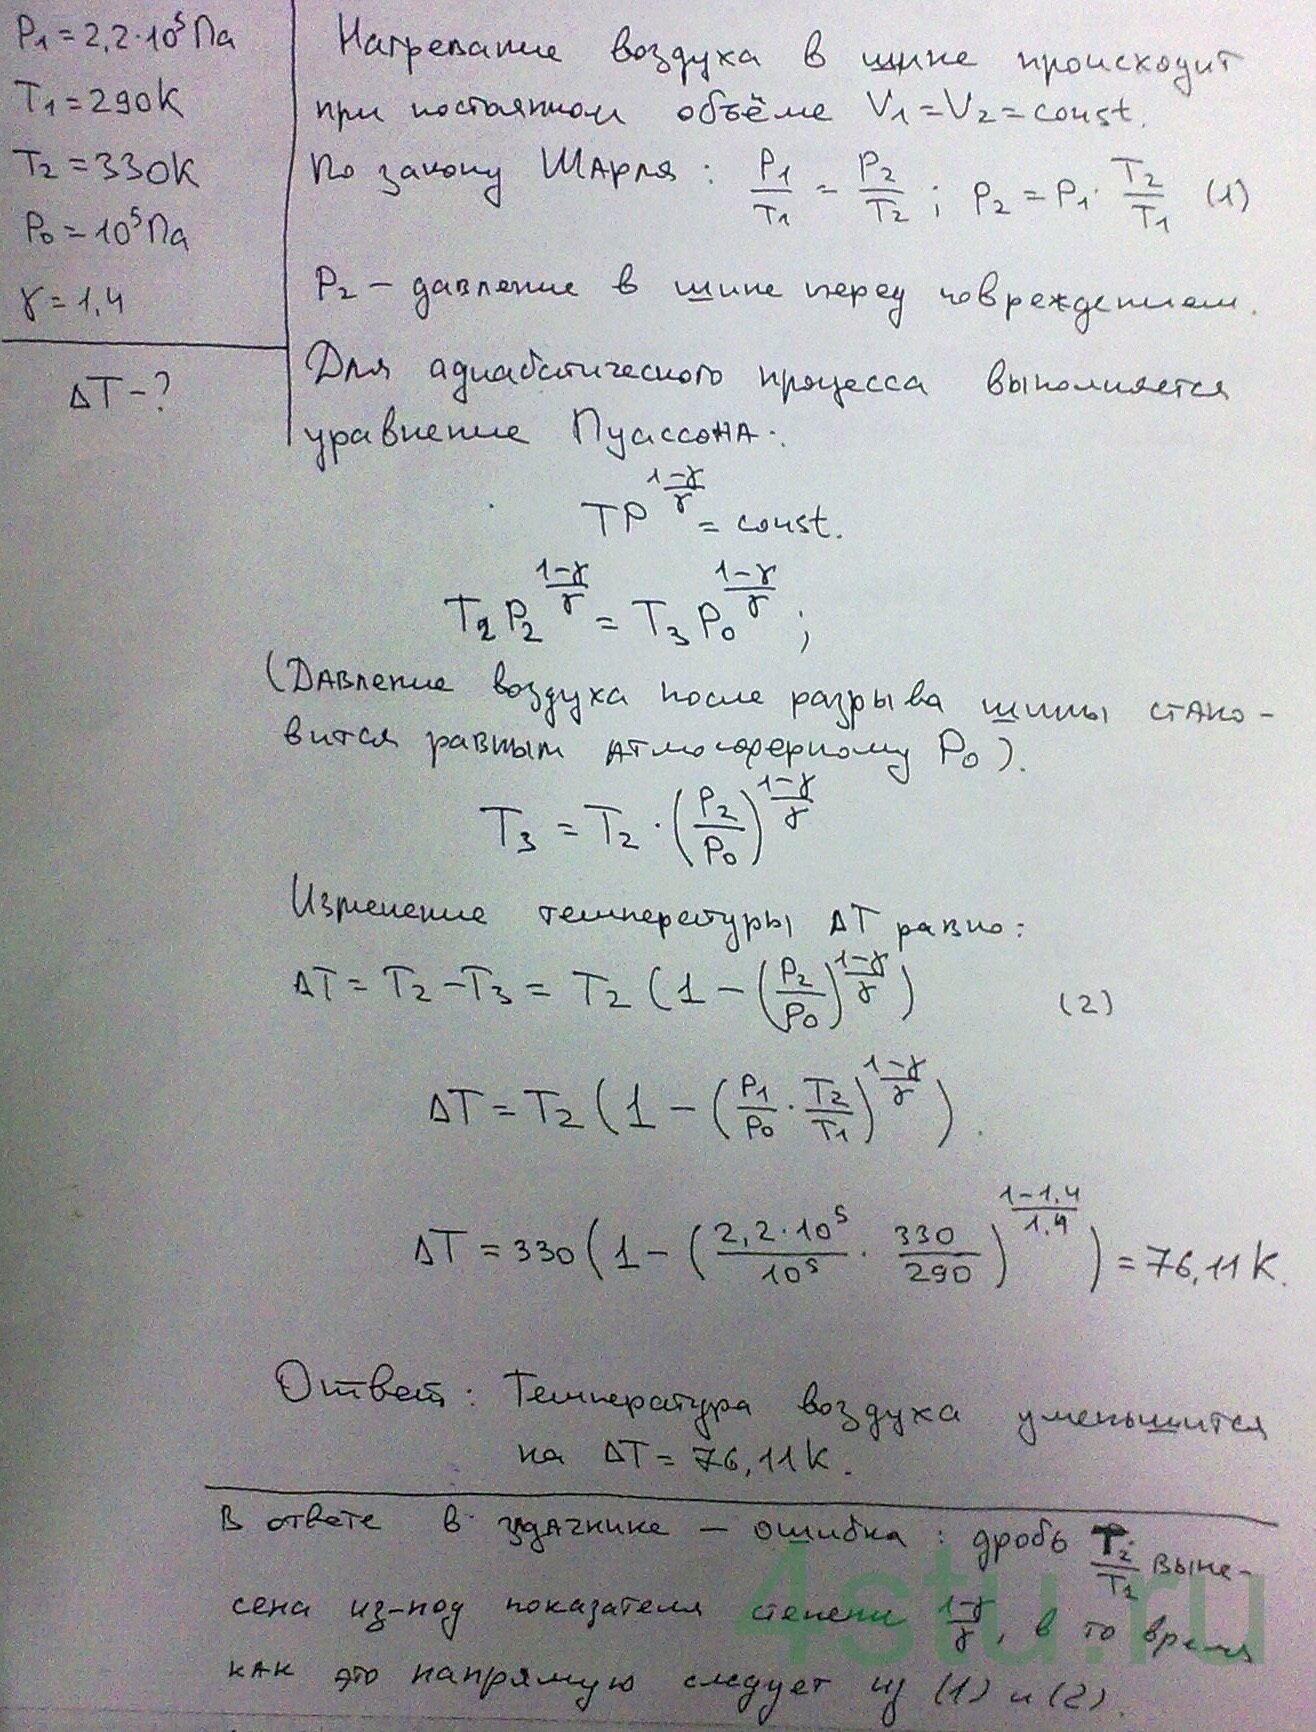 P₁ = 2,2·10⁵ Па
T₁ = 290К
T₂ = 330К
P₀ = 10⁵ Па
γ = 1,4
ΔT - ?
Нагревание воздуха в шине происходит
при постоянном объёме V₁ = V₂ = const.
По закону Шарля: P₁/T₁ = P₂/T₂ ; P₂ = P₁ · T₂/T₁ (1)
P₂ – давление в шине перед повреждением.
Для адиабатического процесса выполняется
уравнение Пуассона:
TP^((1-γ)/γ) = const.
T₂P₂^((1-γ)/γ) = T₃P₀^((1-γ)/γ) ;
(Давление воздуха после разрыва шины стано-
вится равным атмосферному P₀).
T₃ = T₂ · (P₂/P₀)^((1-γ)/γ)
Изменение температуры ΔT равно:
ΔT = T₂ - T₃ = T₂ (1 - (P₂/P₀)^((1-γ)/γ)) (2)
ΔT = T₂ (1 - (P₁/P₀ · T₂/T₁)^((1-γ)/γ)).
ΔT = 330 (1 - (2,2·10⁵/10⁵ · 330/290)^((1-1,4)/1,4)) = 76,11К.
Ответ: Температура воздуха уменьшится
на ΔT = 76,11К.
В ответе в задачнике – ошибка: дробь T₂/T₁ выне-
сена из-под показателя степени (1-γ)/γ, в то время
как это напрямую следует из (1) и (2).
4stu.ru